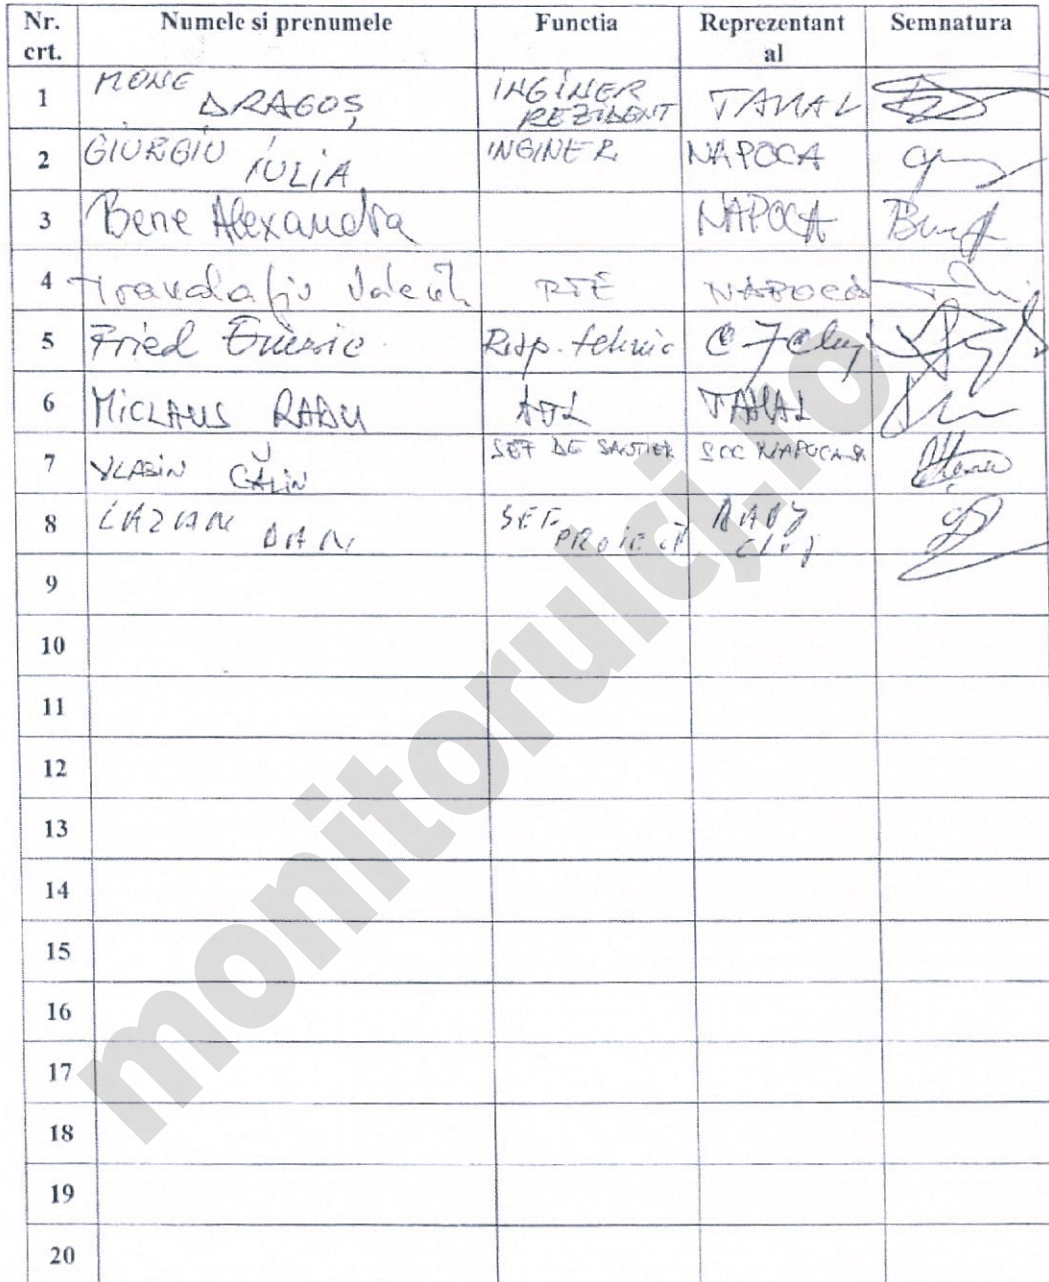 Nr. crt. Numele si prenumele Functia Reprezentant al Semnatura
1 MONE DRAGOȘ INGINER REZIDENT TAHAL
2 GIURGIU IULIA INGINER NAPOCA
3 Bene Alexandra NAPOCA
4 RTE NAPOCA
5 Fried Emeric Resp. tehnic Cluj
6 MICLAUS RADU TAHAL
7 VLASIN CĂLIN SEF DE SANTIER SCC NAPOCA SA
8 LAZIAN DAN SEF PROIECT CLUJ
9
10
11
12
13
14
15
16
17
18
19
20
monitorulcj.ro